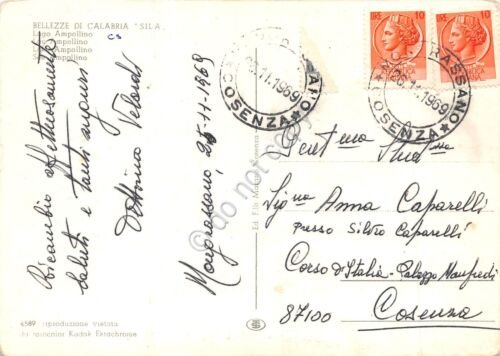 BELLEZZE DI CALABRIA "SILA"
Lago Ampollino
Ampollino
Ampollino
Ampollino
CS
Ricambio affettuosamente
saluti e tanti auguri
Dottorino Velardi
Mongrassano, 25-11-1969
6589 riproduzione vietata
Kodak Ektachrome
Ed. F.lli
LIRE 10
LIRE 10
25.11.1969
COSENZA
MONGRASSANO
25.11.1969
COSENZA
do not copy
Gent.ma
Sig.na Anna Caparelli
presso Silvio Caparelli
Corso d'Italia - Palazzo Manfredi
87100 Cosenza